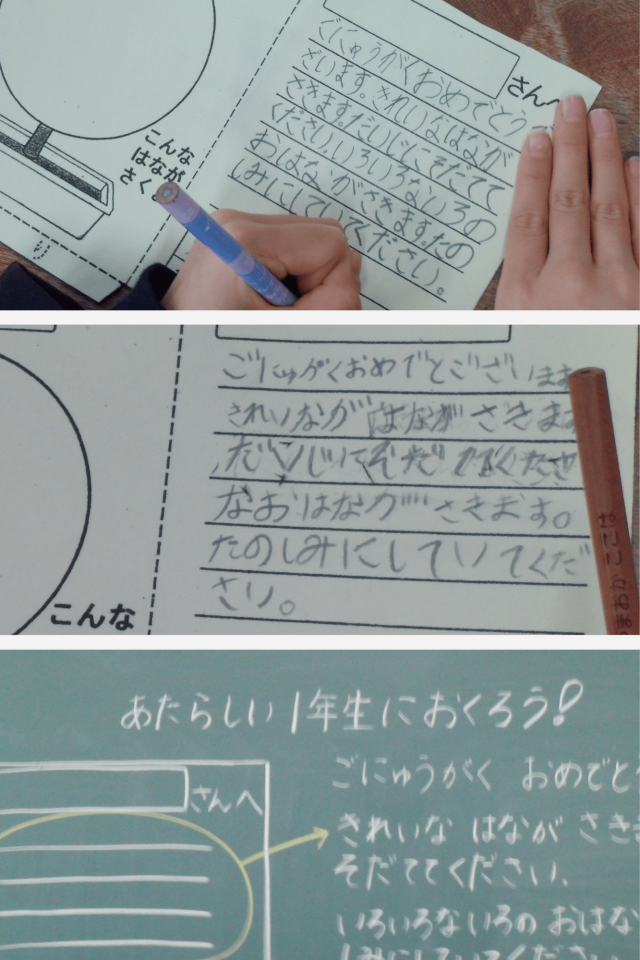 さんへ
ごにゅうがくおめでとうご
ざいます。きれいなはなが
さきます。だいじにそだてて
ください。いろいろないろの
おはながさきます。たの
しみにしていてください。
こんな
はなが
さく
ごにゅがくおめでとございます
きれいなが はながさきます
だいじにそだててくださ
なおはながさきます。
たのしみにしていてくだ
さい。
こんな
あたらしい1年生におくろう!
さんへ
ごにゅうがく おめでと
きれいな はなが さき
そだててください。
いろいろないろの おはな
しみにしていてください